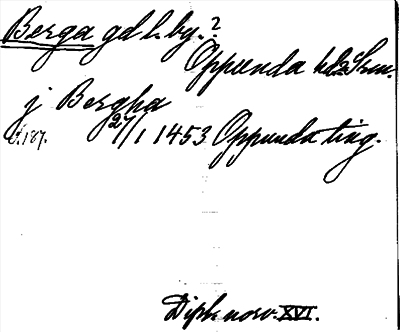 Berga gd l. by.?
Oppunda hd Srm.
j Bergha
27/1 1453 Oppunda ting.
s. 187.
Dipl. norv. XVI.